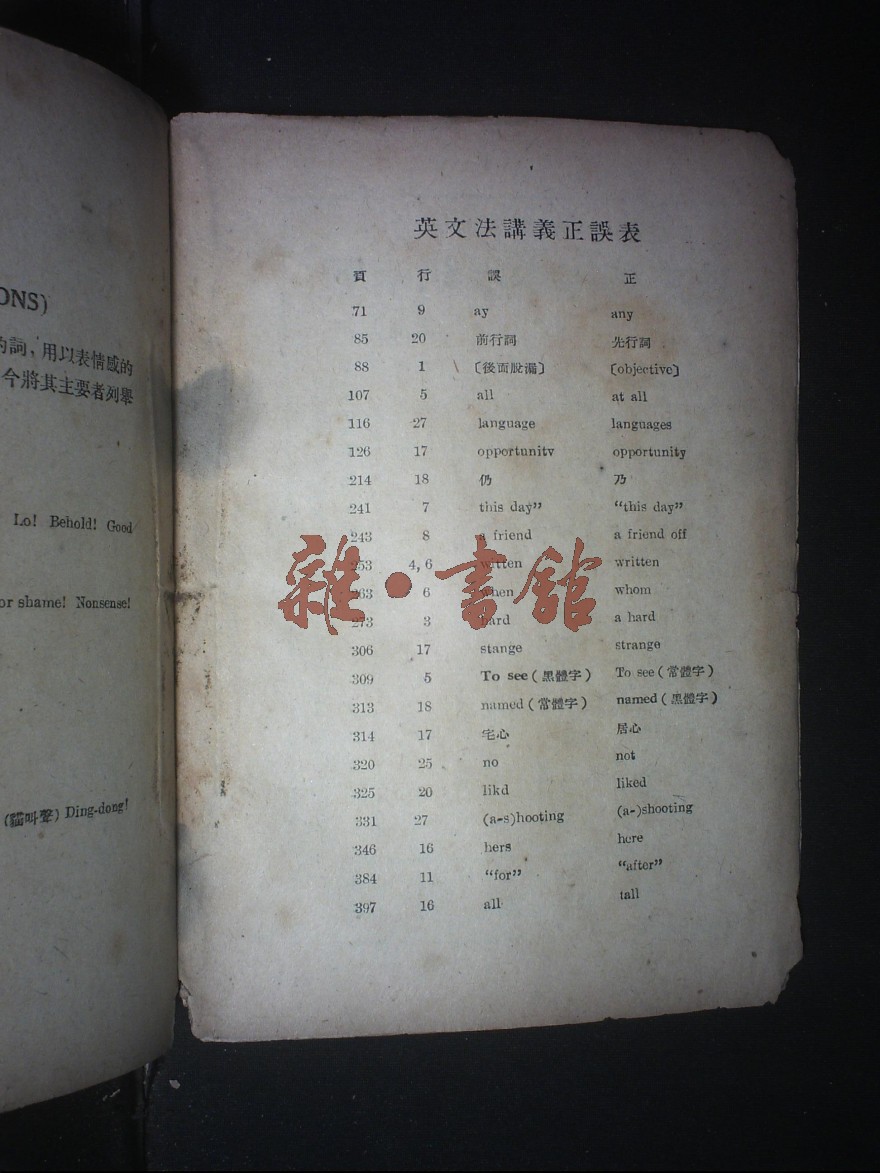 ONS)
的詞，用以表情感的
今將其主要者列舉
Lo! Behold! Good
or shame! Nonsense!
(貓叫聲) Ding-dong!
英文法講義正誤表
頁 行 誤 正
71 9 ay any
85 20 前行詞 先行詞
88 1 〔後面脫漏〕 〔objective〕
107 5 all at all
116 27 language languages
126 17 opportunitv opportunity
214 18 仍 乃
241 7 this day” “this day”
243 8 a friend a friend off
253 4, 6 witten written
263 6 when whom
273 3 hard a hard
306 17 stange strange
309 5 To see (黑體字) To see (常體字)
313 18 named (常體字) named (黑體字)
314 17 宅心 居心
320 25 no not
325 20 likd liked
331 27 (a-s)hooting (a-)shooting
346 16 hers here
384 11 “for” “after”
397 16 all tall
雜·書館